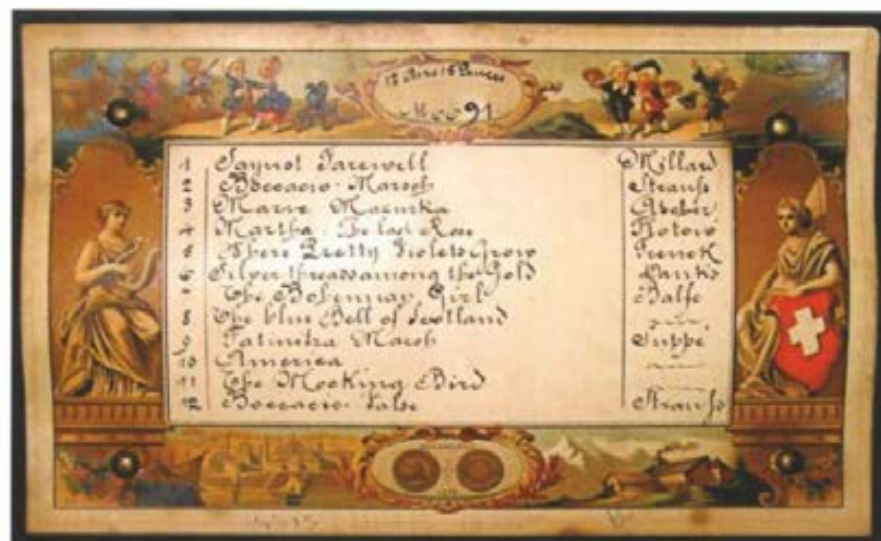 12 Airs
No 691
1 Saynot Farewell Millard
2 Boccacio-March Strauss
3 Marie Mazurka
4 Martha. The last Rose Flotow
5 Where Pretty Violets Grow
6 Silver threads among the Gold Danks
7 The Girl Balfe
8 The blue Bell of Scotland
9 Fatinitza March Suppé
10 America
11 The Mocking Bird
12 Boccacio-Valse Strauss